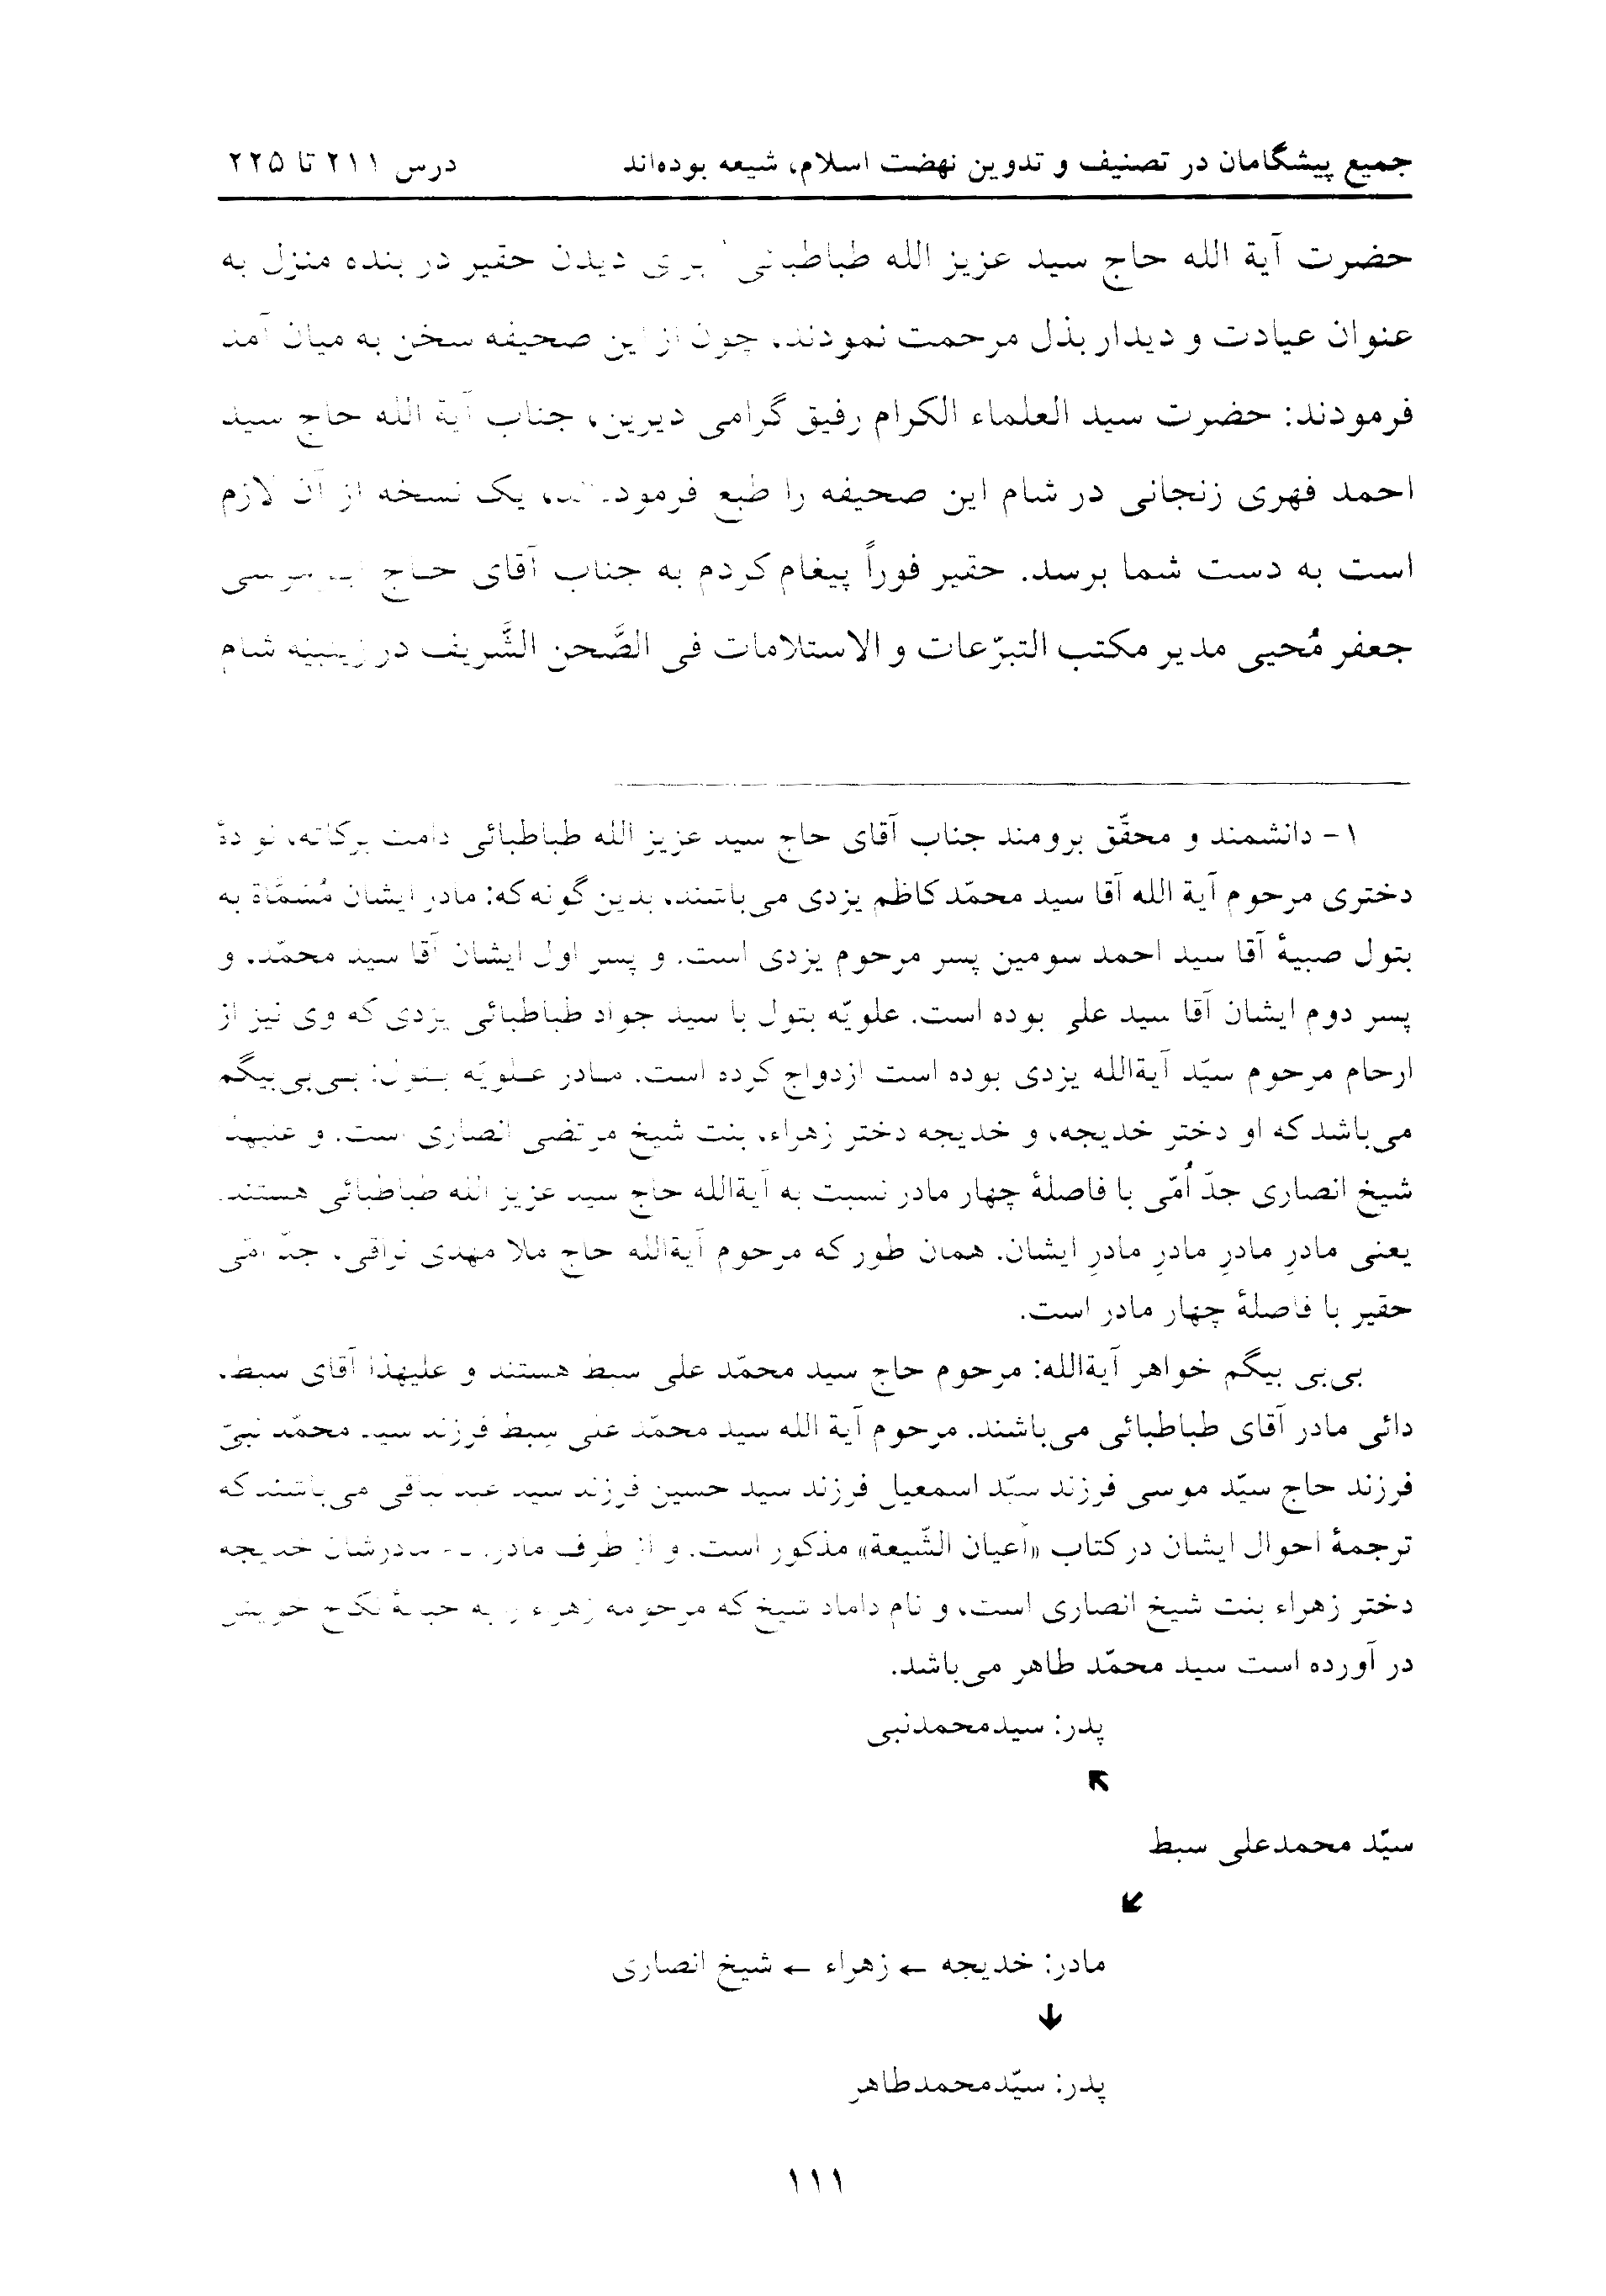 جمیع پیشگامان در تصنیف و تدوین نهضت اسلام، شیعه بوده‌اند درس ۲۱۱ تا ۲۲۵
حضرت آیة الله حاج سید عزیز الله طباطبائی ۱ برای دیدن حقیر در بنده منزل به
عنوان عیادت و دیدار بذل مرحمت نمودند، چون از این صحیفه سخن به میان آمد
فرمودند: حضرت سید العلماء الکرام رفیق گرامی دیرین، جناب آیة الله حاج سید
احمد فهری زنجانی در شام این صحیفه را طبع فرموده‌اند، یک نسخه از آن لازم
است به دست شما برسد. حقیر فوراً پیغام کردم به جناب آقای حاج ابوموسی
جعفر مُحیی مدیر مکتب التبرّعات و الاستلامات فی الصَّحن الشَّریف در زینبیه شام
۱- دانشمند و محقّق برومند جناب آقای حاج سید عزیز الله طباطبائی دامت برکاته، نوادهٔ
دختری مرحوم آیة الله آقا سید محمّد کاظم یزدی می‌باشند، بدین گونه که: مادر ایشان مُسَمَّاة به
بتول صبیهٔ آقا سید احمد سومین پسر مرحوم یزدی است. و پسر اول ایشان آقا سید محمّد، و
پسر دوم ایشان آقا سید علی بوده است. علویّه بتول با سید جواد طباطبائی یزدی که وی نیز از
ارحام مرحوم سیّد آیة‌الله یزدی بوده است ازدواج کرده است. مادر علویّه بتول: بی‌بی‌بیگم
می‌باشد که او دختر خدیجه، و خدیجه دختر زهراء، بنت شیخ مرتضی انصاری است. و علیهذا
شیخ انصاری جدّ اُمّی با فاصلهٔ چهار مادر نسبت به آیة‌الله حاج سید عزیز الله طباطبائی هستند.
یعنی مادرِ مادرِ مادرِ مادرِ ایشان. همان طور که مرحوم آیة‌الله حاج ملا مهدی نراقی، جدّ امّی
حقیر با فاصلهٔ چهار مادر است.
بی‌بی بیگم خواهر آیة‌الله: مرحوم حاج سید محمّد علی سبط هستند و علیهذا آقای سبط،
دائی مادر آقای طباطبائی می‌باشند. مرحوم آیة الله سید محمّد علی سِبط فرزند سید محمّد نبیّ
فرزند حاج سیّد موسی فرزند سیّد اسمعیل فرزند سید حسین فرزند سید عبدالباقی می‌باشند که
ترجمهٔ احوال ایشان در کتاب «أعیان الشّیعة» مذکور است. و از طرف مادر، مادرشان خدیجه
دختر زهراء بنت شیخ انصاری است، و نام داماد شیخ که مرحومه زهراء را به حبالهٔ نکاح خویش
در آورده است سید محمّد طاهر می‌باشد.
پدر: سیدمحمدنبی
↖
سیّد محمدعلی سبط
↙
مادر: خدیجه ← زهراء ← شیخ انصاری
↓
پدر: سیّدمحمدطاهر
۱۱۱